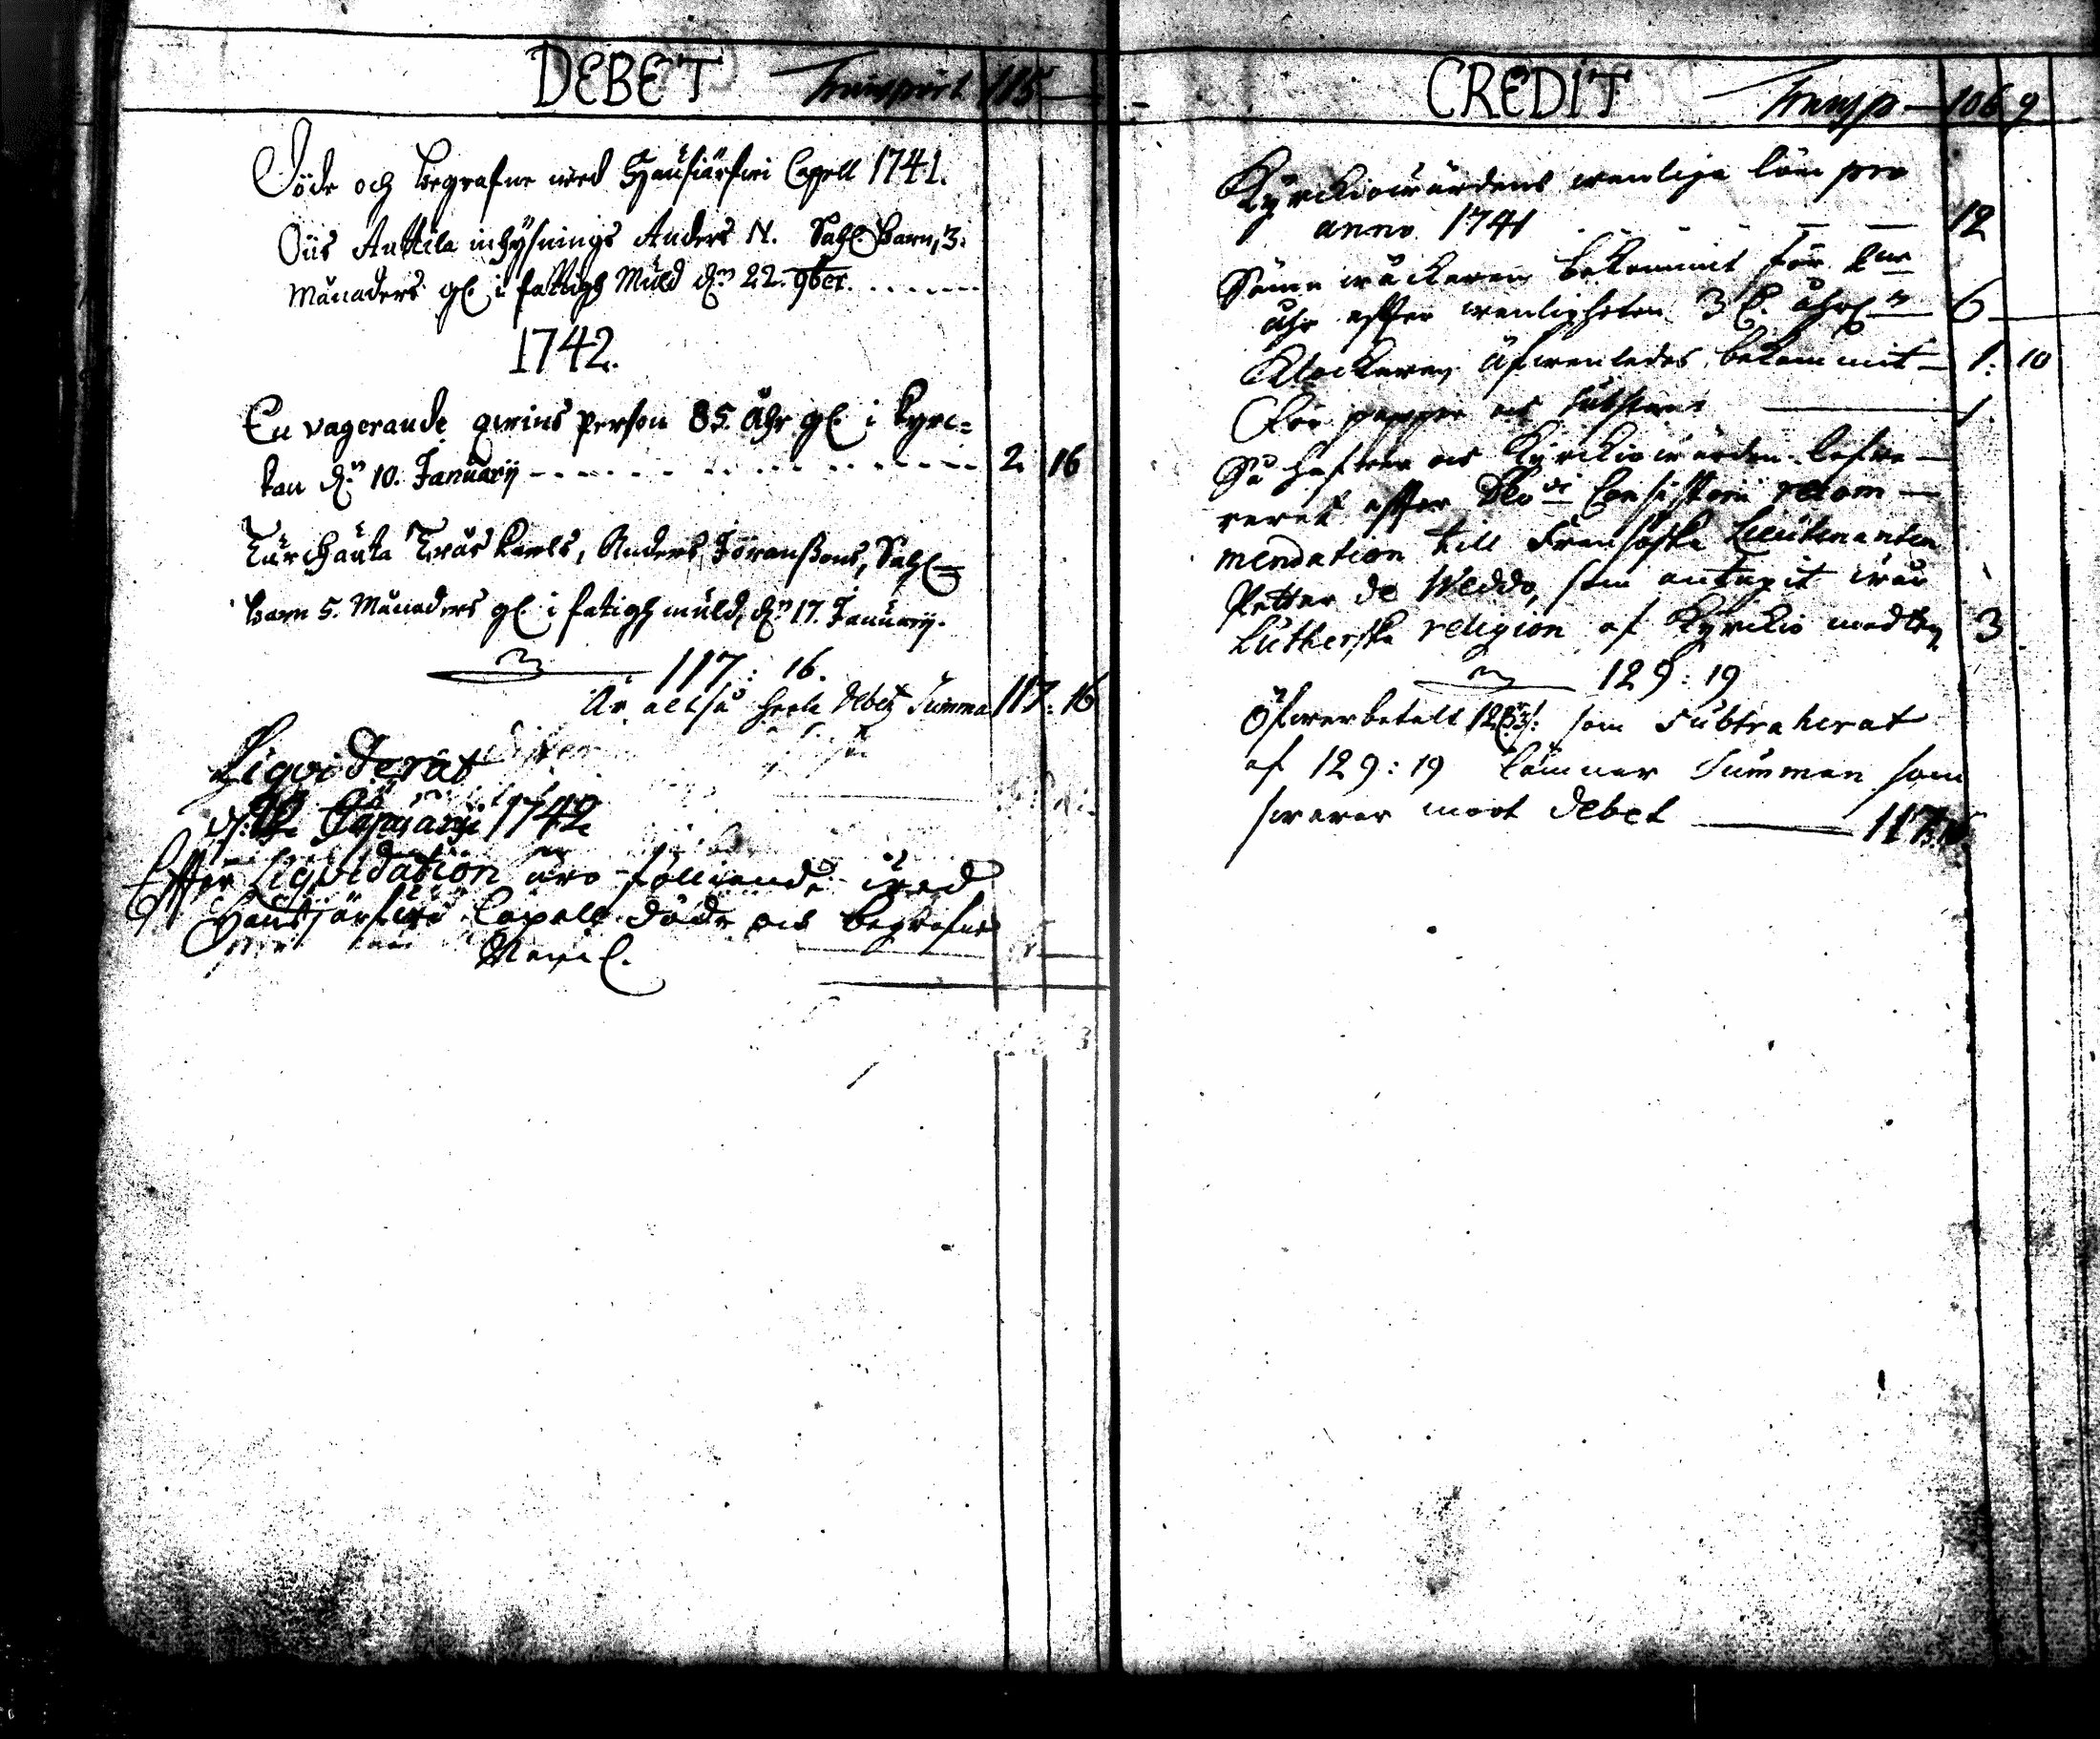 DEBET Transport 115
Döde och begrafne wed Hausjärfwi Capell 1741.
Oiis Anttila inhysnings Anders N. Sahl. Barn, 3.
Månaders gl. i fattigh Muld d. 22. 9ber.
1742.
En vagerande qwins Person 85. Åhr gl. i Kyrc=
kan dn 10. Januarij 2 16
Turchauta Twås Karls, Anders Göranssons, Sahl
Barn 5. Månaders gl. i fatigh muld, dn 17. Januarij.
117: 16.
Är altså heela Debetz Summa 117. 16
Liqviderat
d. Januarij 1742
Effter Liqvidation äro följande wed
Hausjärfwi Capell döde och begrafne
CREDIT Transp. 106 9
Kyrckiowärdens wanliga lön pro
anno 1741 12
Sömnwäckaren bekommit för
åhr effter wanligheten 3 6
Klockaren äfwenledes bekommit 1: 10
För papper och 1
Så hafwer och Kyrckiowärden lefwe-
rerat effter Consistorii recom-
mendation till Fransöske Lieutenanten
Petter de Weddo, som antagit wår
Lutherska religion af Kyrckio medlen 3
129: 19
Öfwerbetalt 12 3 som subtraherat
af 129: 19 lämnar Summan som
swarar moot Debet 117: 16